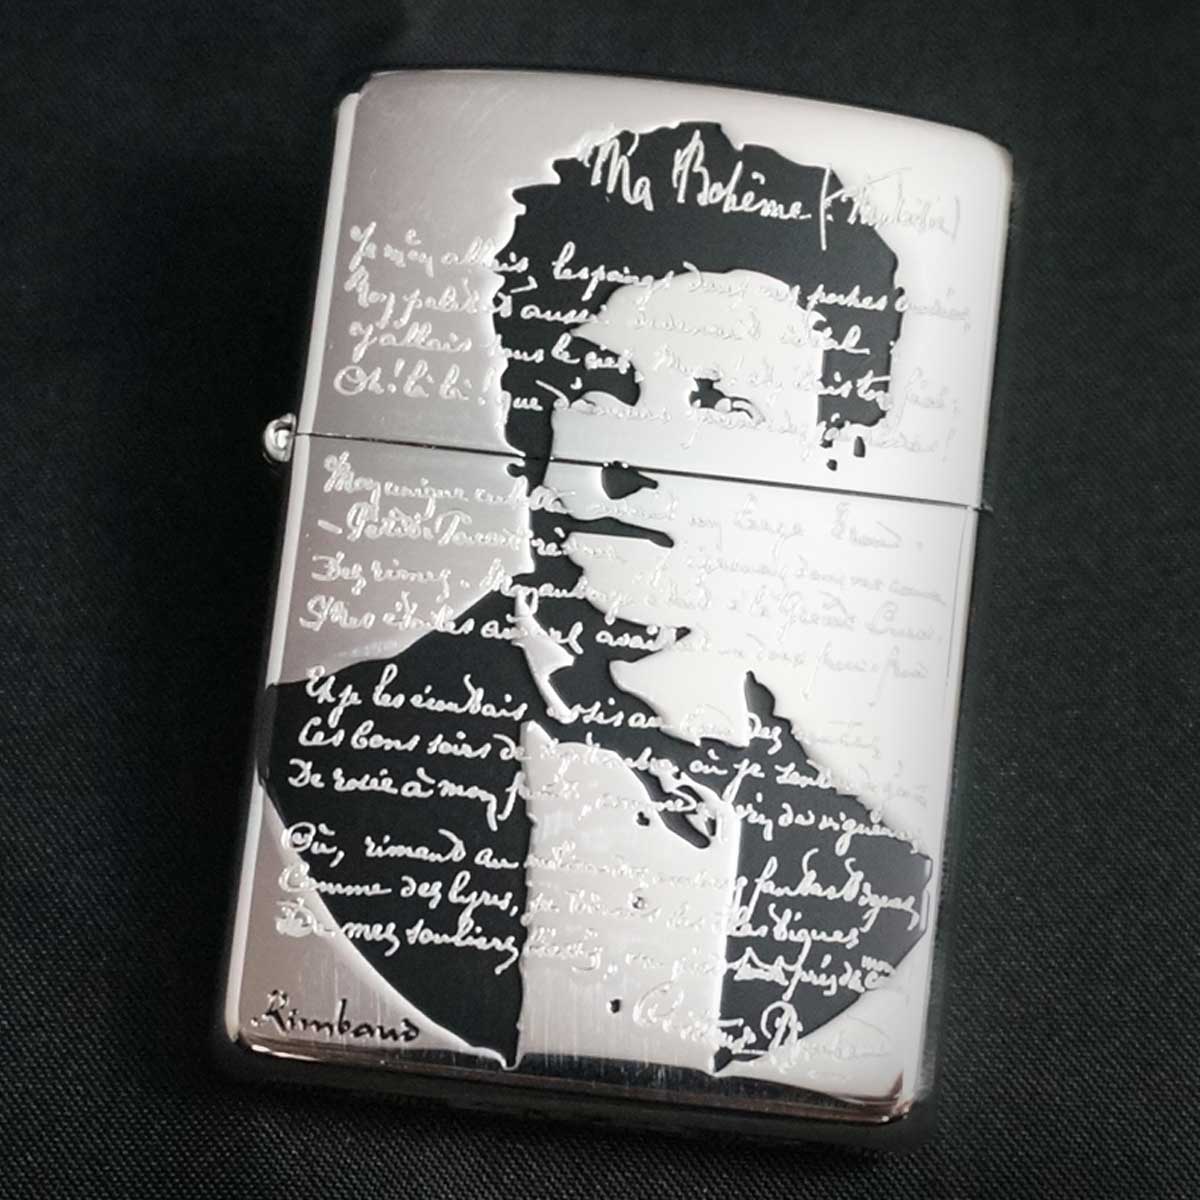 Ma Bohême (Fantaisie)
Je m'en allais, les poings dans mes poches crevées,
Mon paletot aussi devenait idéal;
J'allais sous le ciel, Muse! et j'étais ton féal;
Oh! là là! que d'amours splendides j'ai rêvées!
Mon unique culotte avait un large trou.
- Petit Poucet rêveur, j'égrenais dans ma course
Des rimes. Mon auberge était à la Grande Ourse.
Mes étoiles au ciel avaient un doux frou-frou
Et je les écoutais, assis au bord des routes,
Ces bons soirs de septembre où je sentais des gouttes
De rosée à mon front, comme un vin de vigueur;
Où, rimant au milieu des ombres fantastiques,
Comme des lyres, je tirais les élastiques
De mes souliers blessés, un pied près de mon cœur
Arthur Rimbaud
Rimbaud